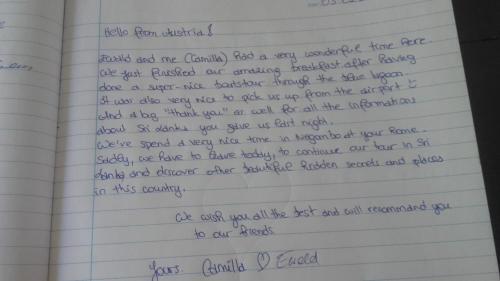 Hello from Austria!
Ewald and me (Camilla) had a very wonderful time here.
We just finished our amazing breakfast after having
done a super-nice boatstour through the blue lagoon.
It was also very nice to pick us up from the airport
And a big "thank you" as well for all the informations
about Sri Lanka you give us last night.
We've spend a very nice time in Negombo at your home.
Sadly, we have to leave today, to continue our tour in Sri
Lanka and discover other beautiful hidden secrets and places
in this country.
We wish you all the best and will recommand you
to our friends
yours. Camilla ♡ Ewald